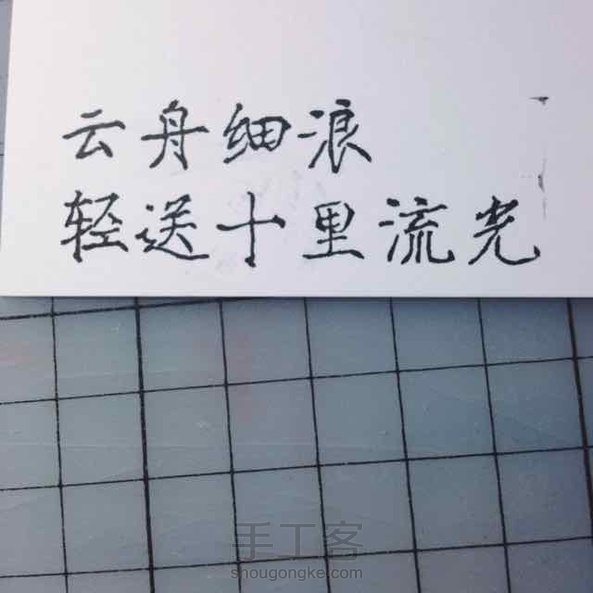 云舟细浪
轻送十里流光
手工客
shougongke.com